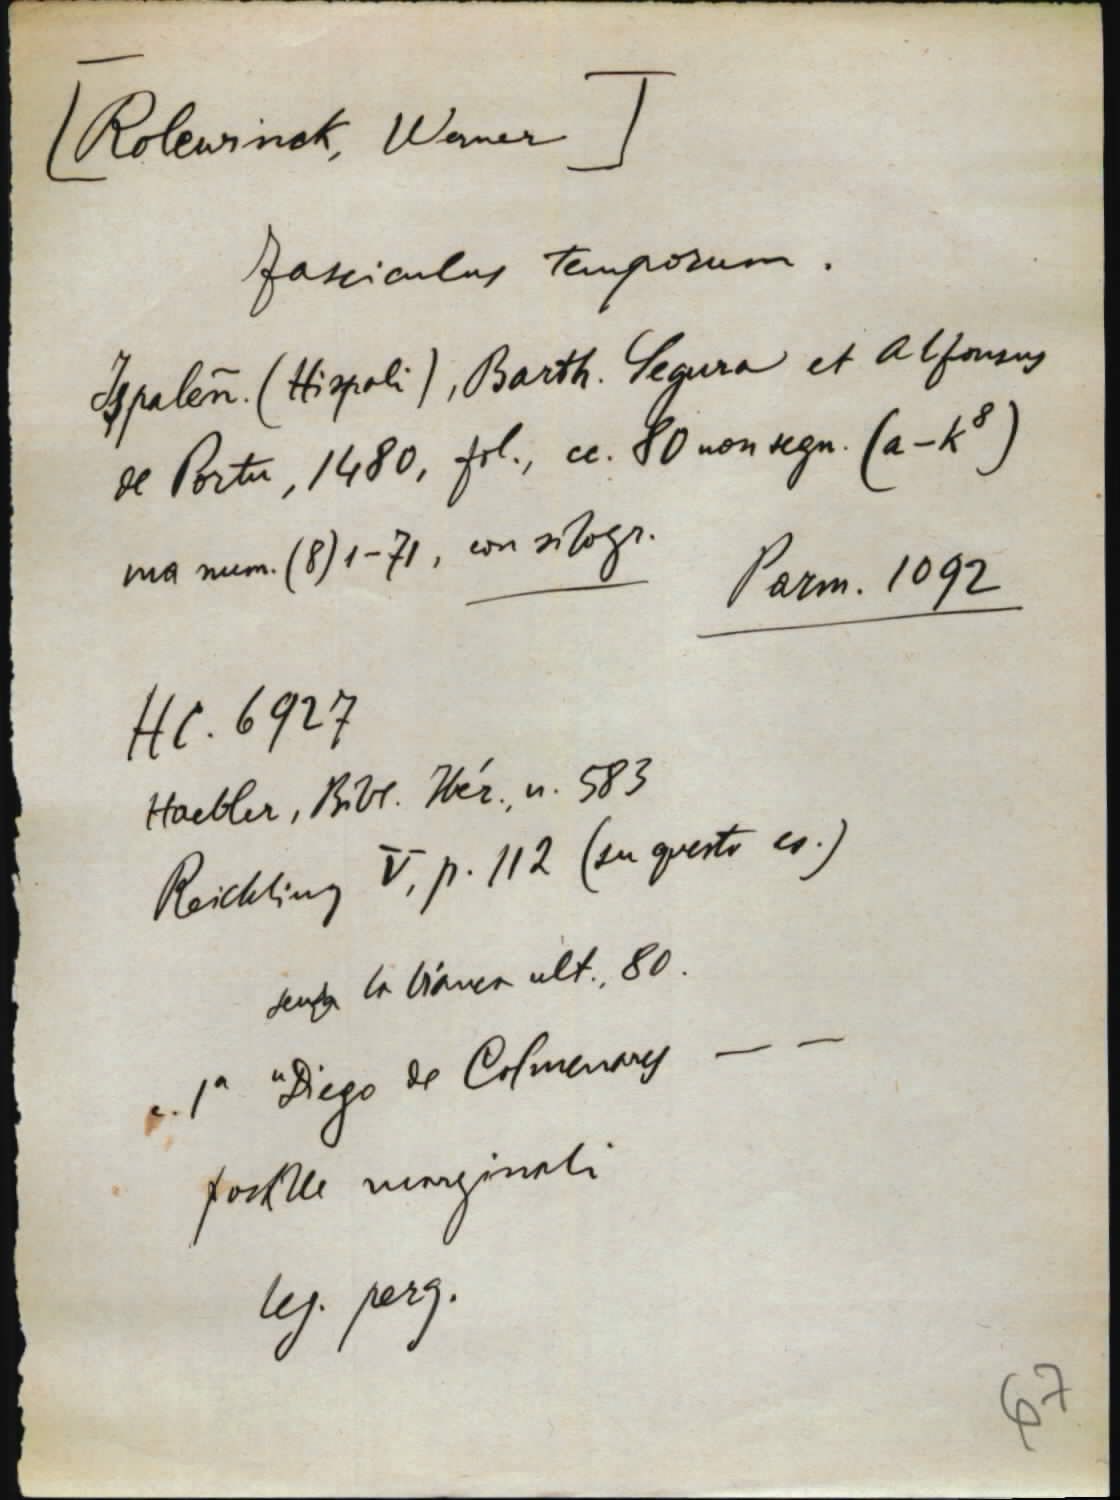 [Rolewinck, Werner]
fasciculus temporum.
Ispaleñ. (Hispali), Barth. Segura et Alfonsus
de Portu, 1480, fol., cc. 80 non segn. (a-k⁸)
ma num. (8) 1-71, con silogr.
Parm. 1092
HC. 6927
Haebler, Bibl. Ibér., n. 583
Reichling V, p. 112 (su questo es.)
senza la bianca ult., 80.
c. 1ª "Diego de Colmenares — —
postille marginali
leg. perg.
67